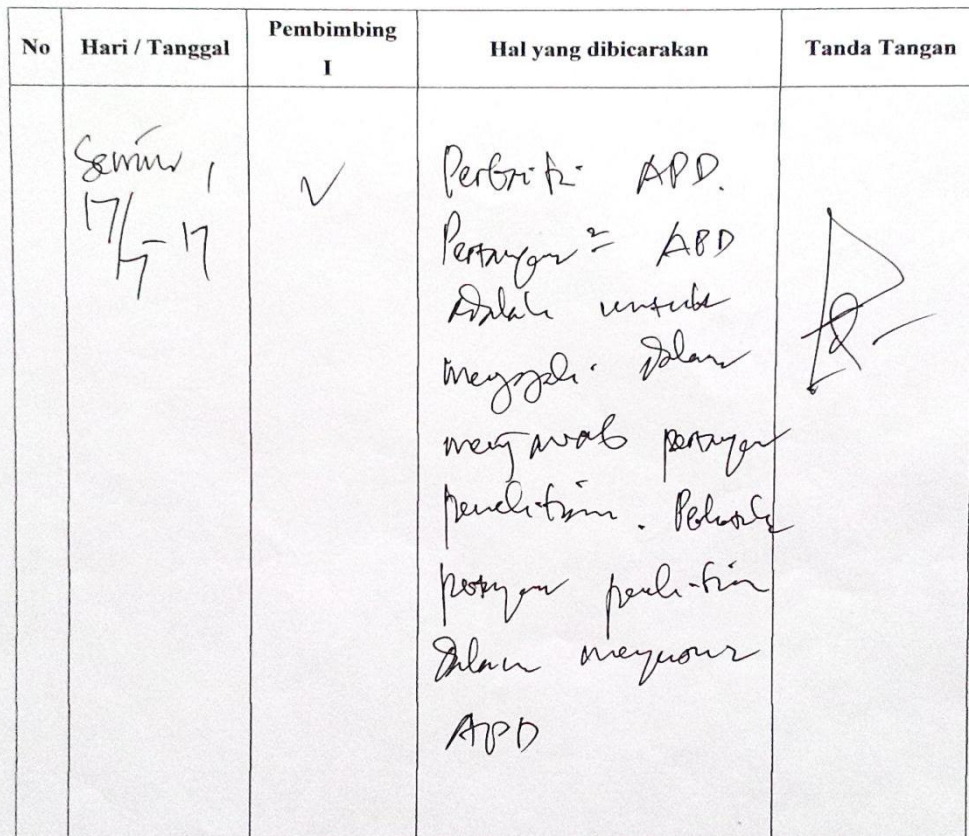 No Hari / Tanggal Pembimbing I Hal yang dibicarakan Tanda Tangan
Senin,
17/7-17
√
Perbaiki APD.
Pertanyaan² APD
adalah untuk
menggali dalam
menjawab pertanyaan
penelitian.
penelitian
dalam menyusun
APD